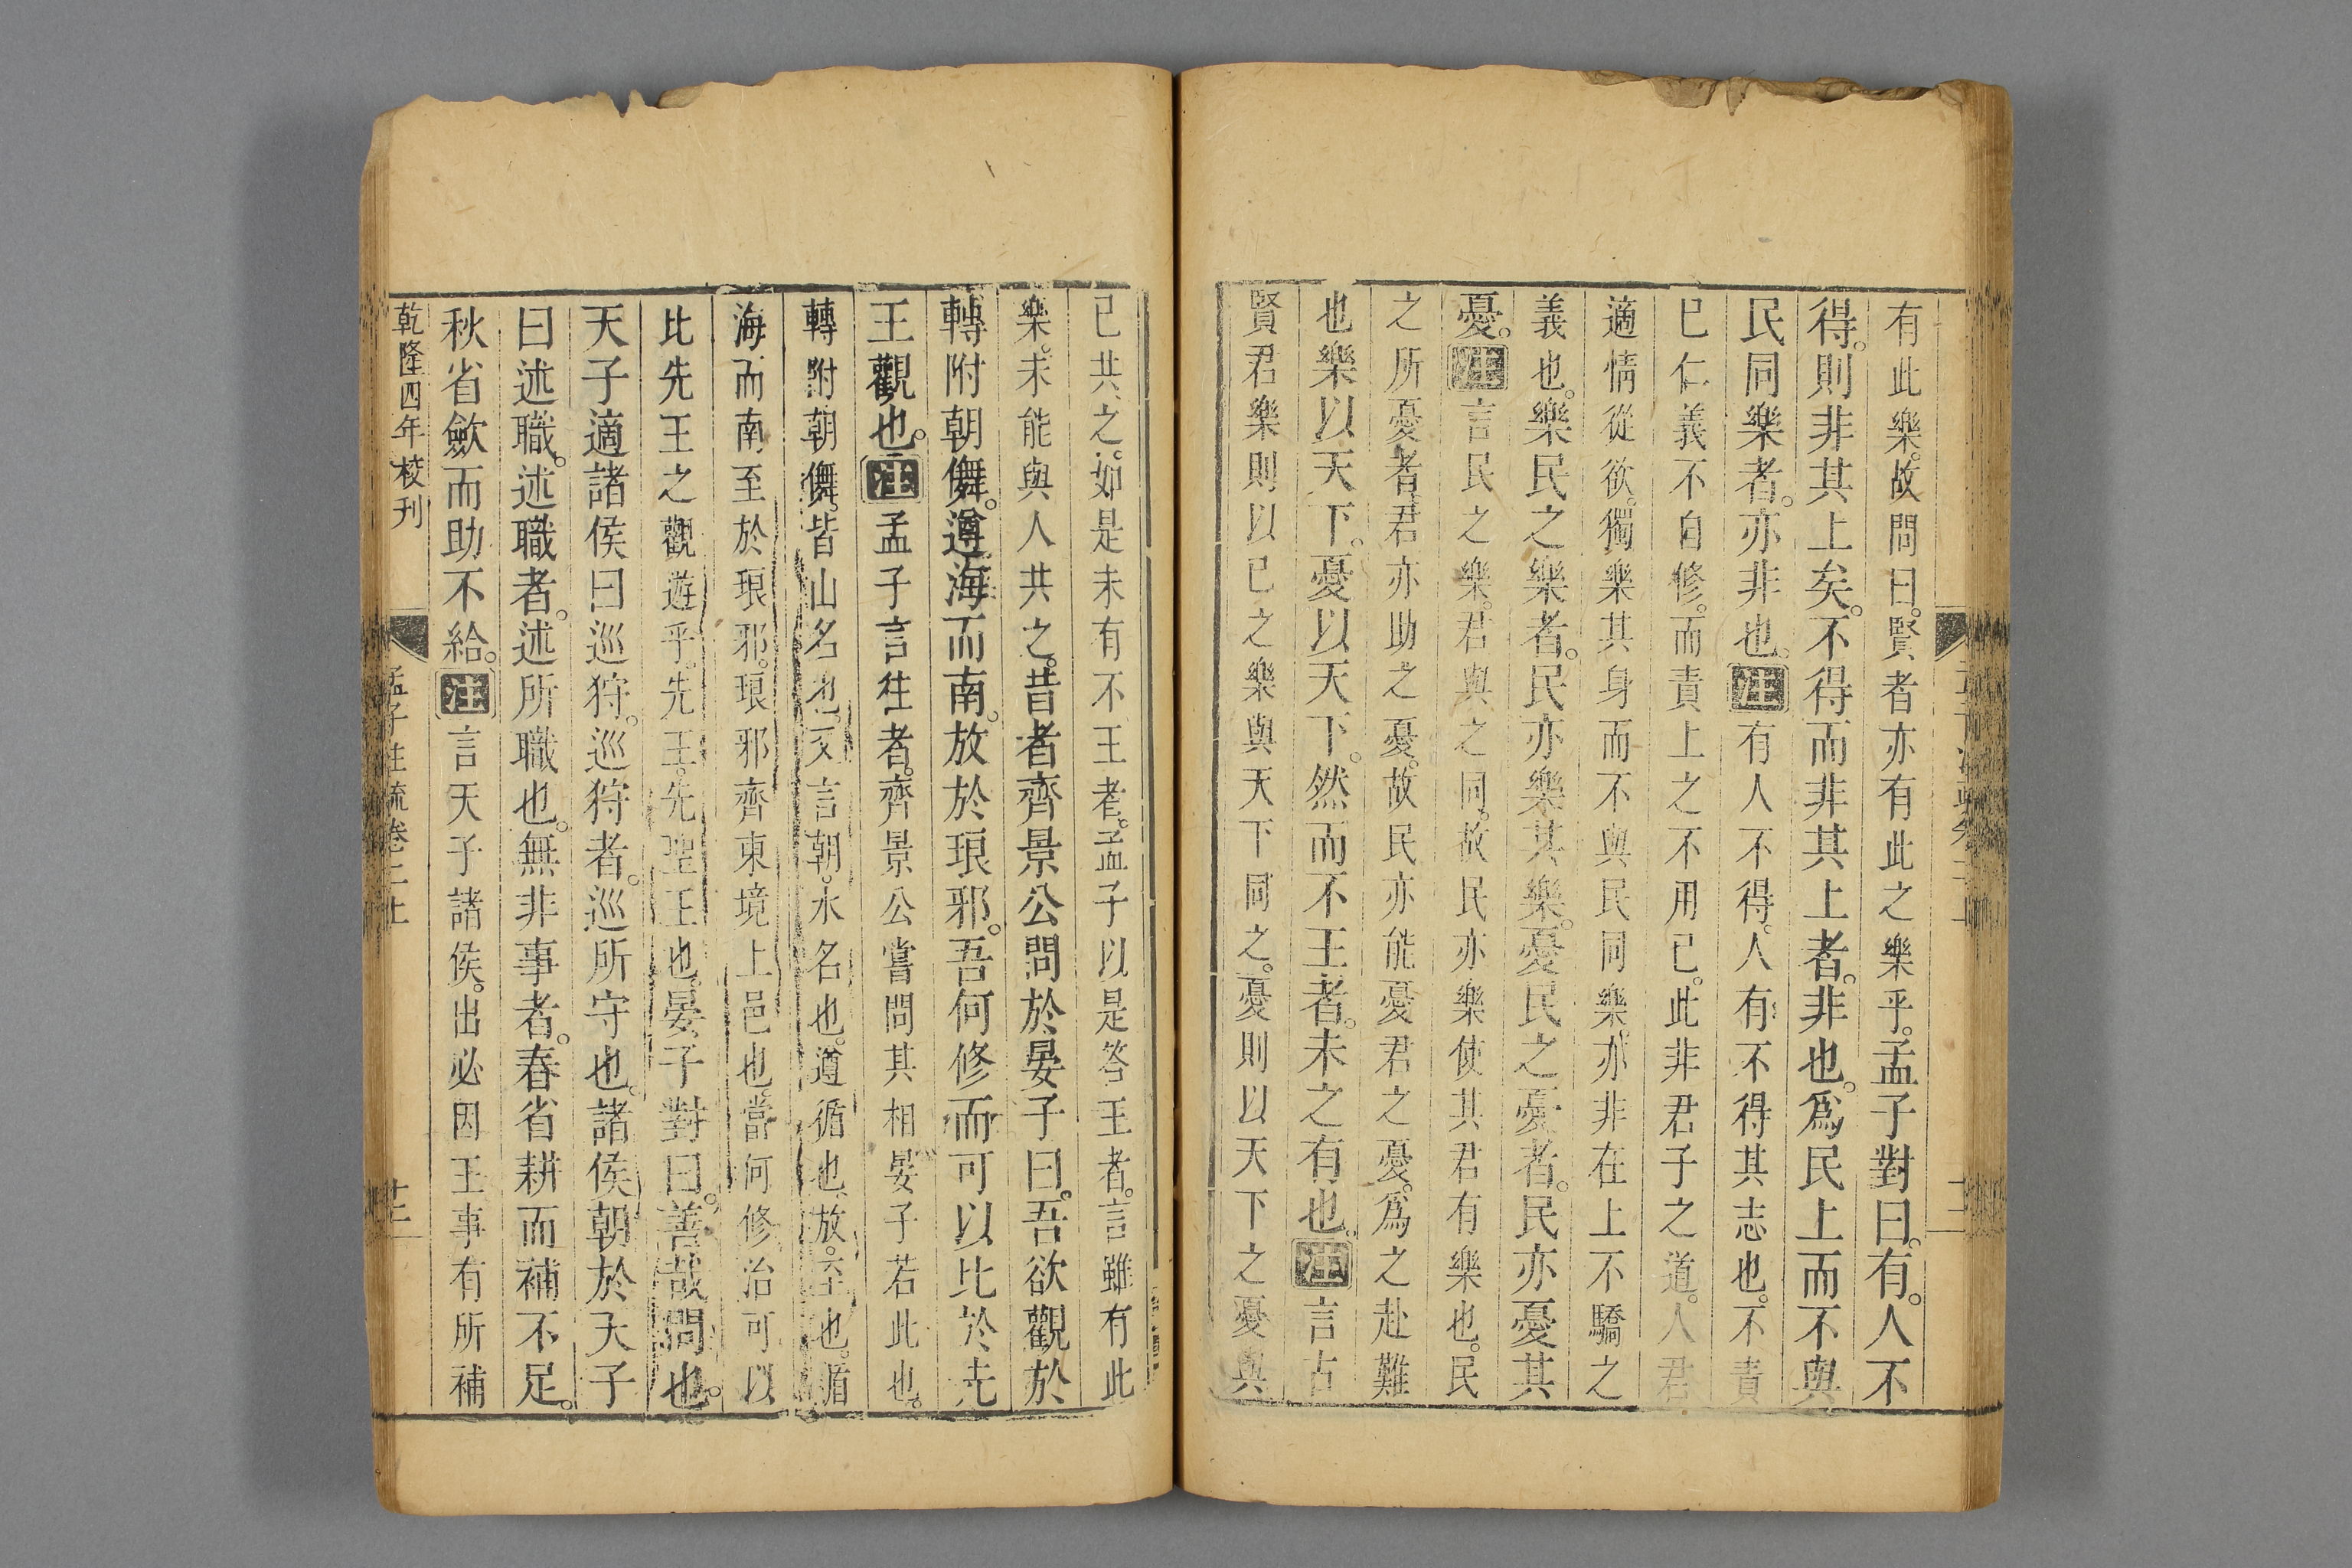 有此樂。故問曰。賢者亦有此之樂乎。孟子對曰。有。人不
得。則非其上矣。不得而非其上者。非也。爲民上而不與
民同樂者。亦非也。注有人不得。人有不得其志也。不責
已仁義不自修。而責上之不用已。此非君子之道。人君
適情從欲。獨樂其身而不與民同樂。亦非在上不驕之
義也。樂民之樂者。民亦樂其樂。憂民之憂者。民亦憂其
憂。注言民之樂。君與之同。故民亦樂使其君有樂也。民
之所憂者君亦助之憂。故民亦能憂君之憂。爲之赴難
也樂以天下。憂以天下。然而不王者。未之有也。注言古
賢君樂則以已之樂與天下同之。憂則以天下之憂與
已共之。如是未有不王者。孟子以是答王者。言雖有此
樂。未能與人共之。昔者齊景公問於晏子曰。吾欲觀於
轉附朝儛。遵海而南。放於琅邪。吾何修而可以比於先
王觀也。注孟子言往者。齊景公嘗問其相晏子若此也。
轉附朝儛。皆山名也。又言朝。水名也。遵循也放。至也。循
海而南至於琅邪。琅邪齊東境上邑也。當何修治可以
比先王之觀遊乎。先王。先聖王也。晏子對曰。善哉問也。
天子適諸侯曰巡狩。巡狩者。巡所守也。諸侯朝於天子
曰述職。述職者。述所職也。無非事者。春省耕而補不足。
秋省斂而助不給。注言天子諸侯。出必因王事有所補
乾隆四年校刊
孟子注疏卷二上